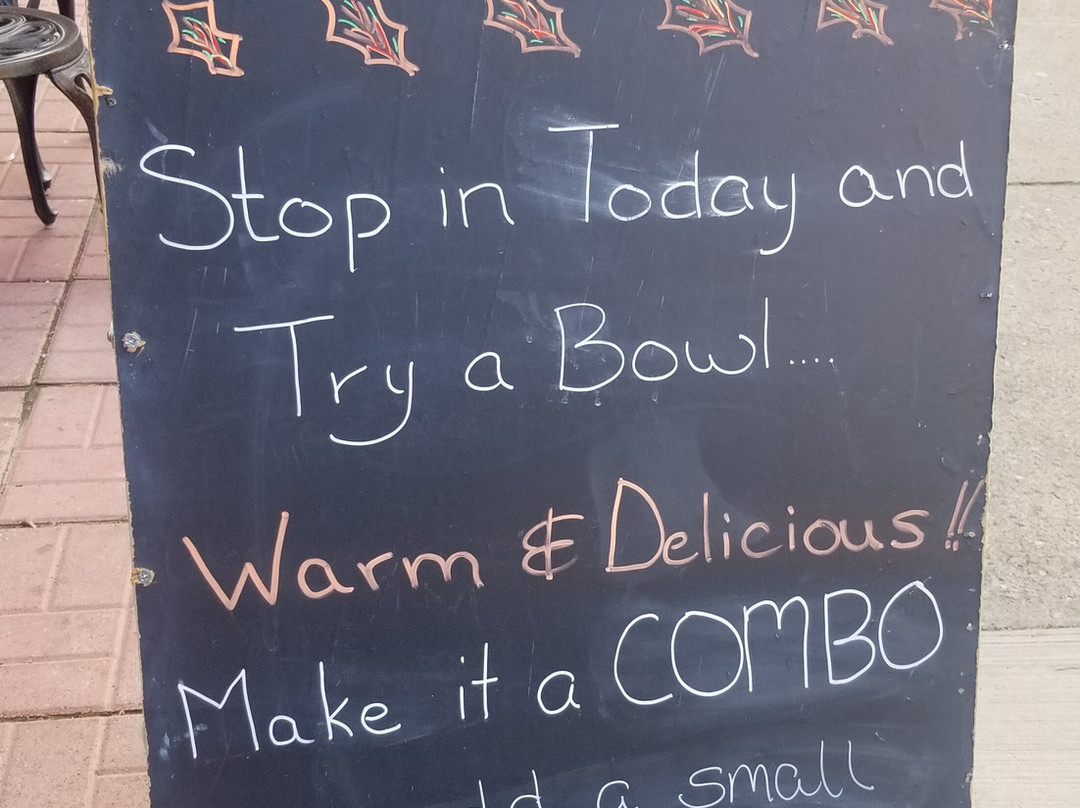 Stop in Today and
Try a Bowl....
Warm & Delicious!!
Make it a COMBO
a small